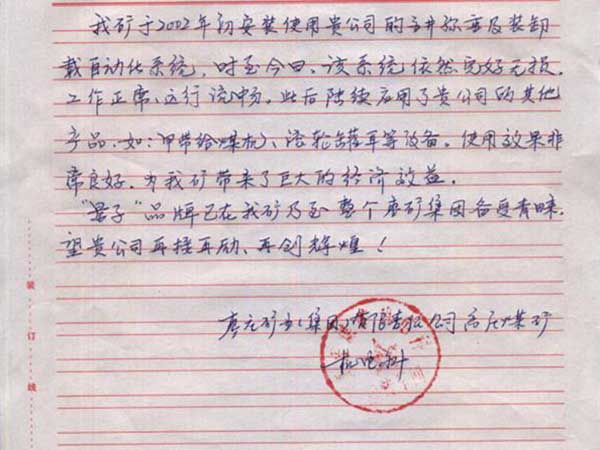 我矿于2002年初安装使用贵公司的主井称重及装卸
载自动化系统，时至今日、该系统依然完好无损，
工作正常、运行流畅。此后陆续应用了贵公司的其他
产品。如：甲带给煤机、滚轮罐耳等设备。使用效果非
常良好，为我矿带来了巨大的经济效益。
“量子”品牌已在我矿乃至整个枣矿集团备受青睐，
望贵公司再接再励、再创辉煌！
枣庄矿业（集团）有限责任公司高庄煤矿
机电科
装
订
线